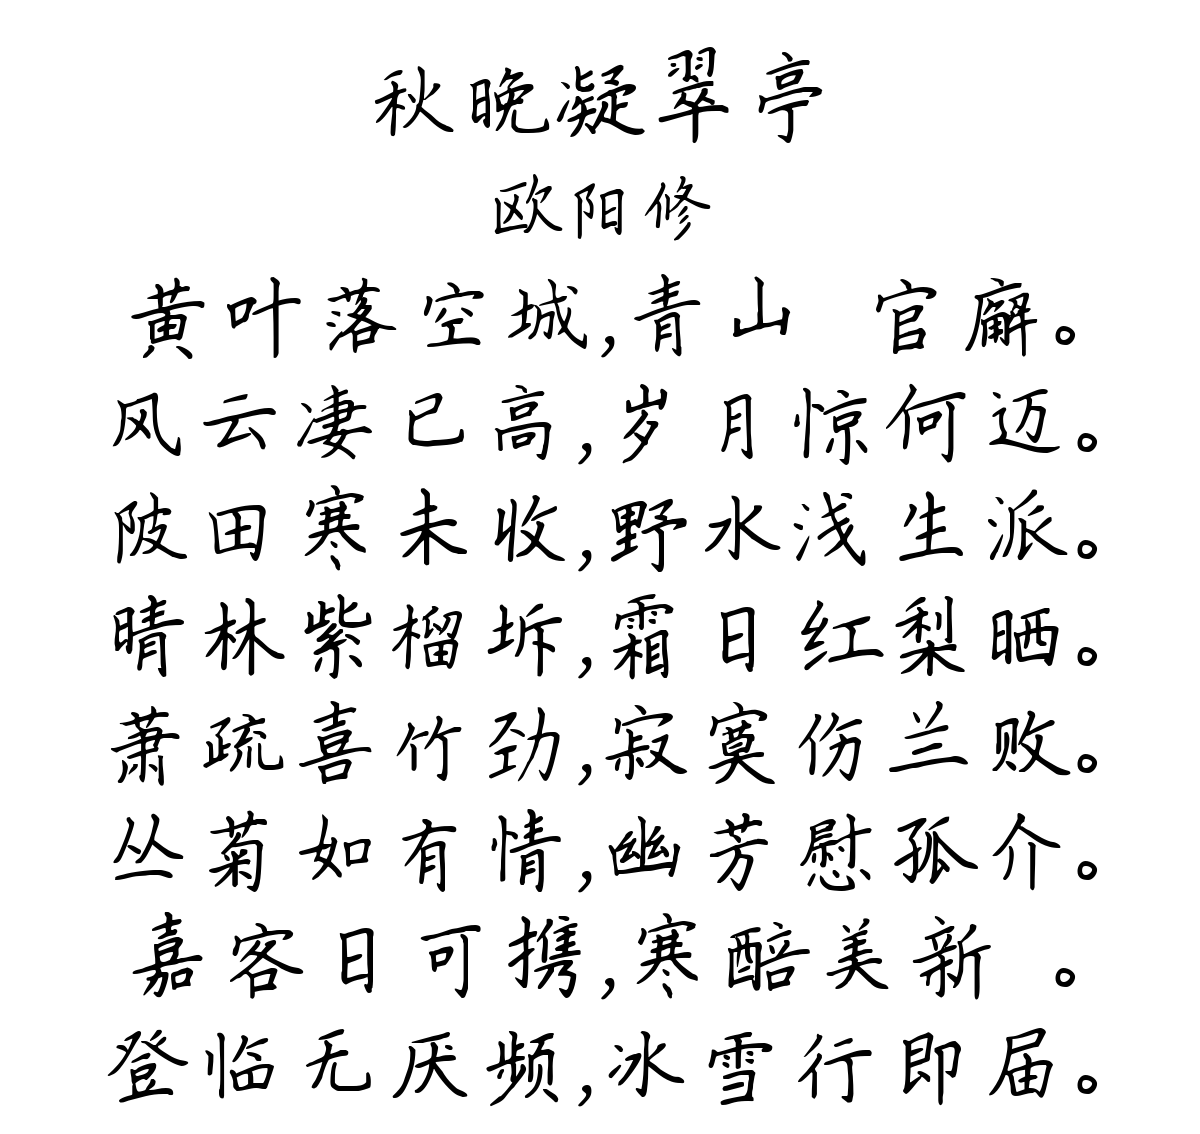 秋晚凝翠亭
欧阳修
黄叶落空城,青山 官廨。
风云凄已高,岁月惊何迈。
陂田寒未收,野水浅生派。
晴林紫榴坼,霜日红梨晒。
萧疏喜竹劲,寂寞伤兰败。
丛菊如有情,幽芳慰孤介。
嘉客日可携,寒醅美新 。
登临无厌频,冰雪行即届。